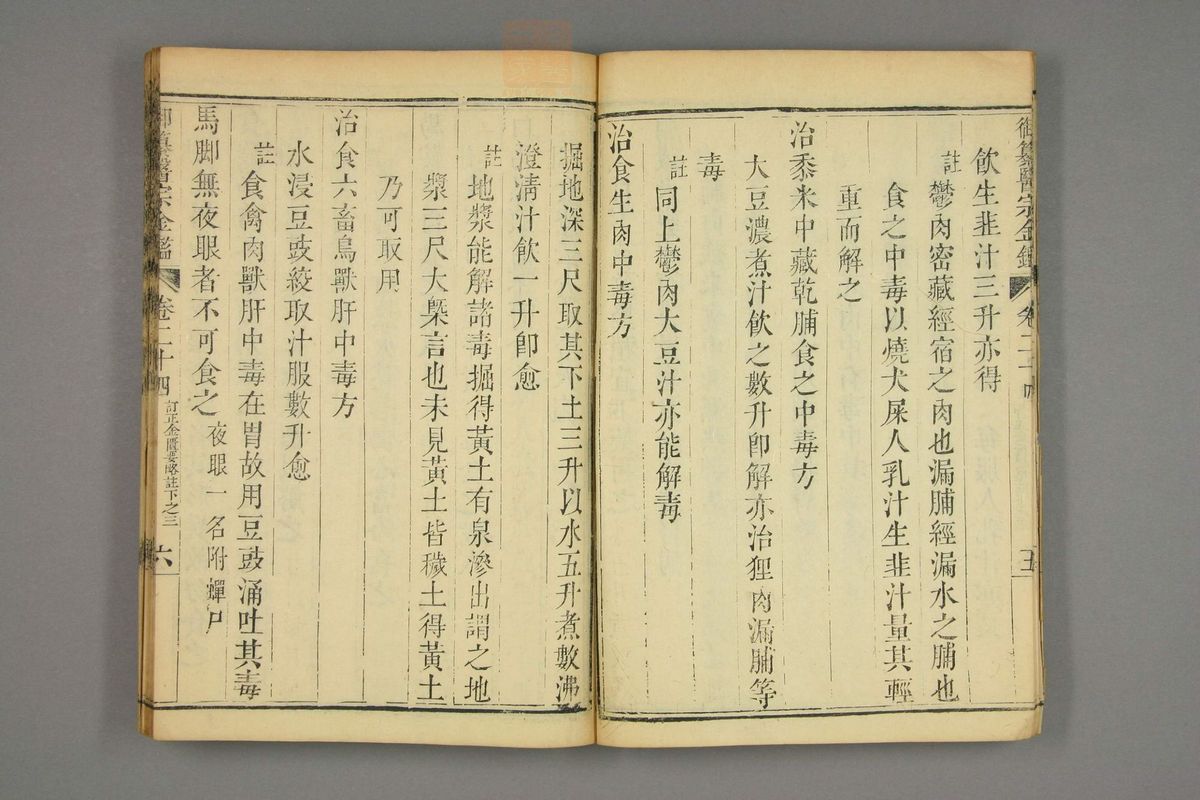 御纂醫宗金鑑 卷二十四 五
飲生韭汁三升亦得
註 鬱肉密藏經宿之肉也漏脯經漏水之脯也
食之中毒以燒犬屎人乳汁生韭汁量其輕
重而解之
治黍米中藏乾脯食之中毒方
大豆濃煮汁飲之數升卽解亦治狸肉漏脯等
毒
註 同上鬱肉大豆汁亦能解毒
治食生肉中毒方
掘地深三尺取其下土三升以水五升煮數沸
澄淸汁飲一升卽愈
註 地漿能解諸毒掘得黃土有泉滲出謂之地
漿三尺大槩言也未見黃土皆穢土得黃土
乃可取用
治食六畜鳥獸肝中毒方
水浸豆豉絞取汁服數升愈
註 食禽肉獸肝中毒在胃故用豆豉涌吐其毒
馬脚無夜眼者不可食之 夜眼一名附蟬尸
御纂醫宗金鑑 卷二十四 訂正金匱要略註下之三 六